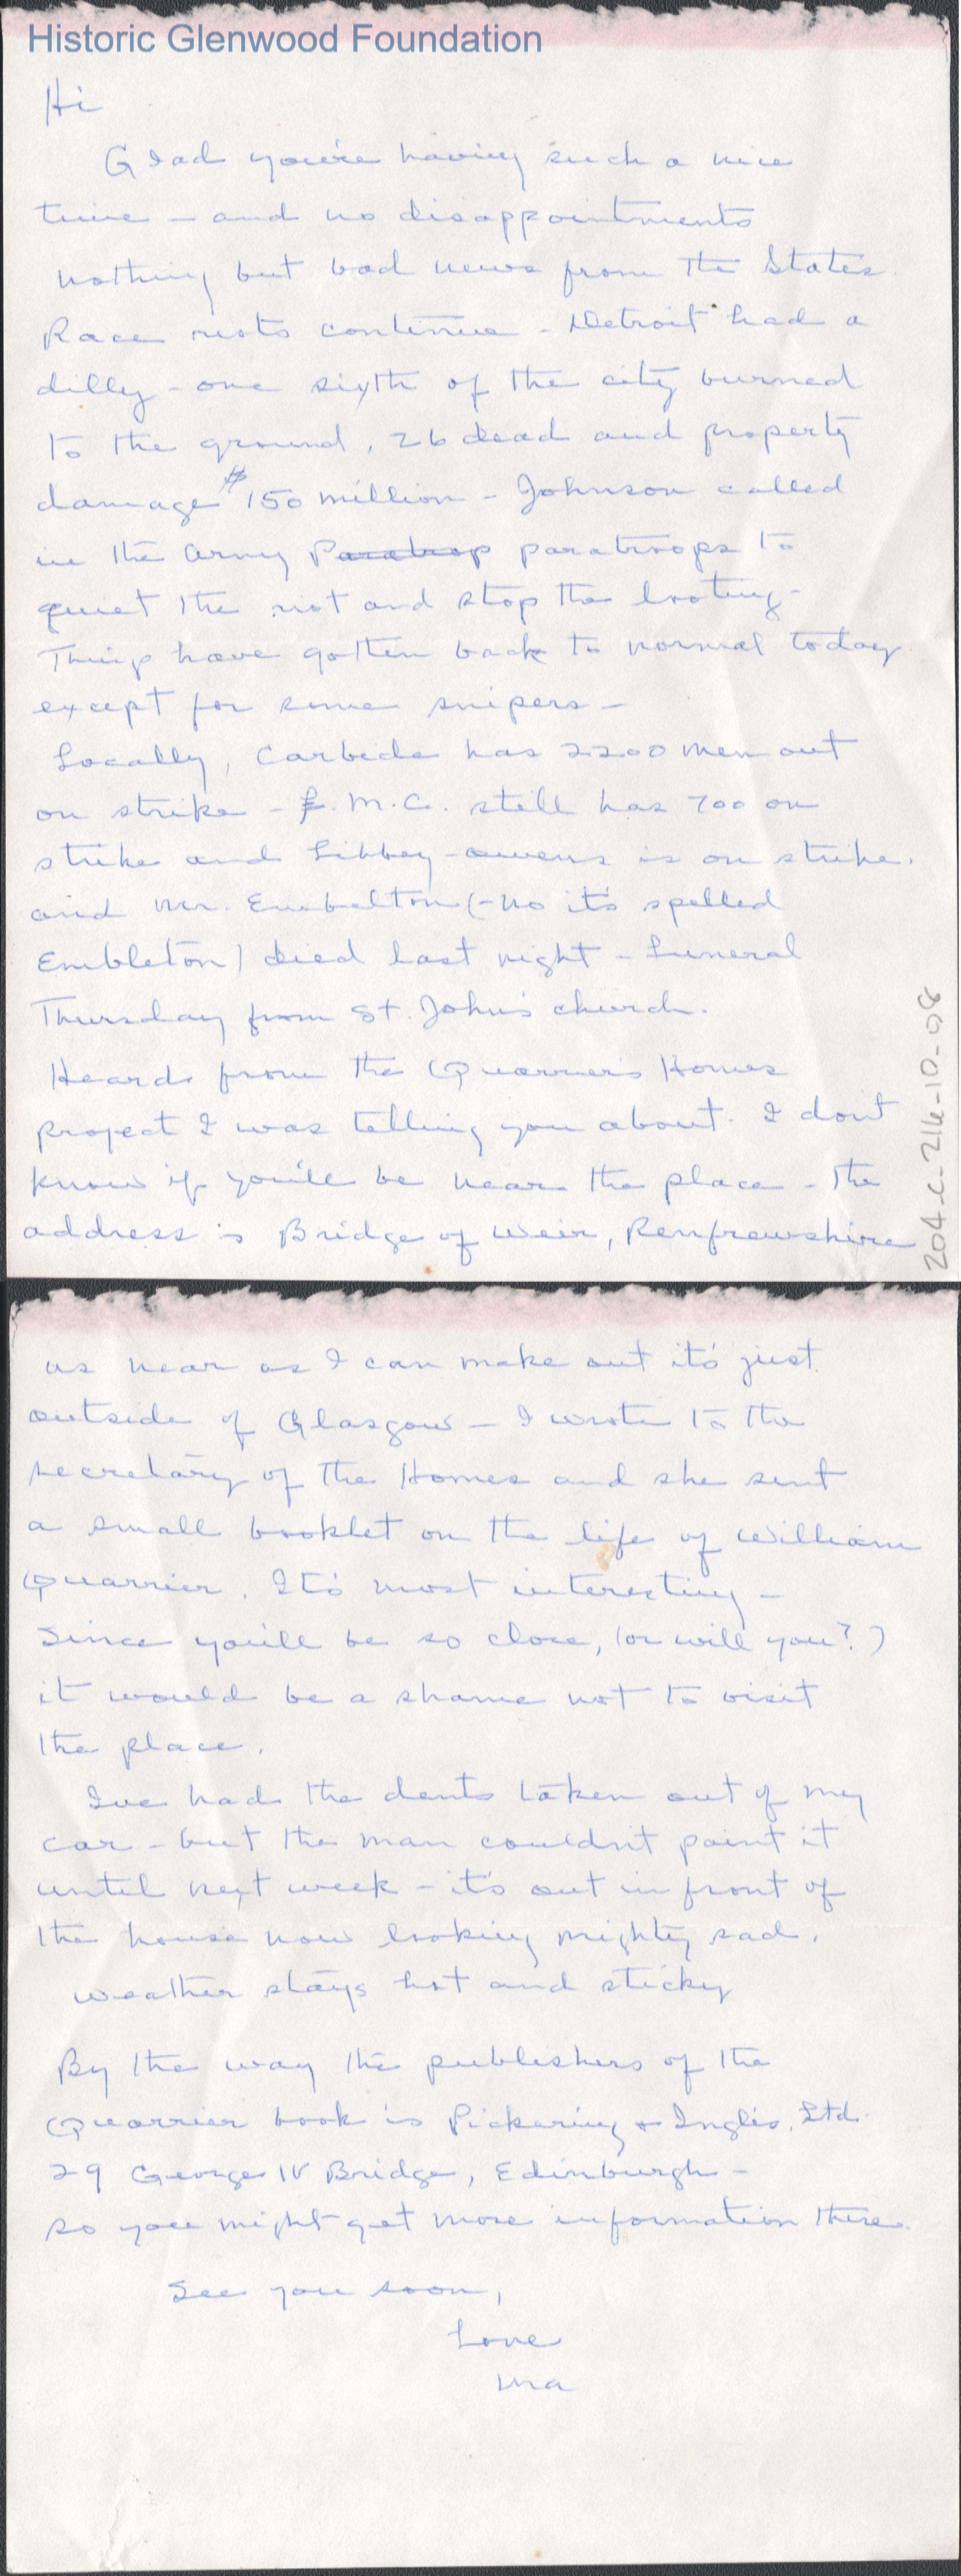 Historic Glenwood Foundation
Hi
Glad you're having such a nice
time - and no disappointments
nothing but bad news from the States.
Race riots continue - Detroit had a
dilly - one sixth of the city burned
to the ground, 26 dead and property
damage $150 million - Johnson called
in the Army Paratrop paratroops to
quiet the riot and stop the looting -
Things have gotten back to normal today
except for some snipers -
Locally, Carbide has 2200 men out
on strike - F.M.C. still has 700 on
strike and Libbey-Owens is on strike.
and Mr. Embelton (-no it's spelled
Embleton) died last night - Funeral
Thursday from St. John's church.
Heard from the Quarrier's Homes
project I was telling you about. I don't
know if you'll be near the place - the
address is Bridge of Weir, Renfrewshire
204-c-216-10-08
as near as I can make out it's just
outside of Glasgow - I wrote to the
secretary of the Homes and she sent
a small booklet on the life of William
Quarrier. It's most interesting -
Since you'll be so close, (or will you?)
it would be a shame not to visit
the place.
I've had the dents taken out of my
car - but the man couldn't paint it
until next week - it's out in front of
the house now looking mighty sad.
Weather stays hot and sticky
By the way the publishers of the
Quarrier book is Pickering & Inglis, Ltd.
29 George IV Bridge, Edinburgh -
so you might get more information there.
See you soon,
Love
Ma